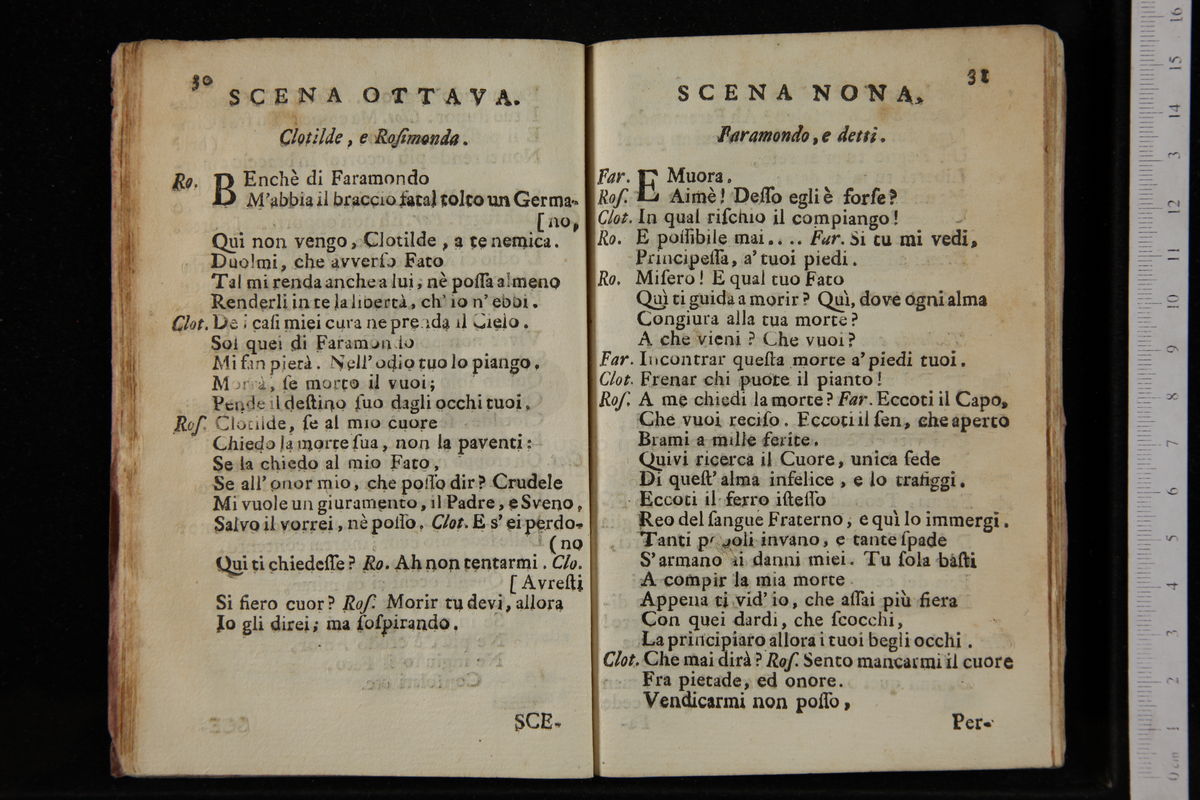 30
SCENA OTTAVA.
Clotilde, e Rosimonda.
Ro. BEnchè di Faramondo
M'abbia il braccio fatal tolto un Germa-
[no,
Qui non vengo, Clotilde, a te nemica.
Duolmi, che avverso Fato
Tal mi renda anche a lui, nè possa almeno
Renderli in te la libertà, ch' io n' ebbi.
Clot. De i casi miei cura ne prenda il Cielo.
Sol quei di Faramondo
Mi fan pietà. Nell' odio tuo lo piango.
Morrà, se morto il vuoi;
Pende il destino suo dagli occhi tuoi.
Ros. Clotilde, se al mio cuore
Chiedo la morte sua, non la paventi:
Se la chiedo al mio Fato,
Se all' onor mio, che posso dir? Crudele
Mi vuole un giuramento, il Padre, e Sveno,
Salvo il vorrei, nè posso. Clot. E s' ei perdo-
(no
Qui ti chiedesse? Ro. Ah non tentarmi. Clo.
[Avresti
Si fiero cuor? Ros. Morir tu devi, allora
Io gli direi; ma sospirando.
SCE-
31
SCENA NONA.
Faramondo, e detti.
Far. E Muora.
Ros. Aimè! Desso egli è forse?
Clot. In qual rischio il compiango!
Ro. E possibile mai.... Far. Si tu mi vedi,
Principessa, a' tuoi piedi.
Ro. Misero! E qual tuo Fato
Quì ti guida a morir? Quì, dove ogni alma
Congiura alla tua morte?
A che vieni? Che vuoi?
Far. Incontrar questa morte a' piedi tuoi.
Clot. Frenar chi puote il pianto!
Ros. A me chiedi la morte? Far. Eccoti il Capo,
Che vuoi reciso. Eccoti il sen, che aperto
Brami a mille ferite.
Quivi ricerca il Cuore, unica sede
Di quest' alma infelice, e lo trafiggi.
Eccoti il ferro istesso
Reo del sangue Fraterno, e quì lo immergi.
Tanti invano, e tante spade
S' armano ai danni miei. Tu sola basti
A compir la mia morte
Appena ti vid' io, che assai più fiera
Con quei dardi, che scocchi,
La principiaro allora i tuoi begli occhi.
Clot. Che mai dirà? Ros. Sento mancarmi il cuore
Fra pietade, ed onore.
Vendicarmi non posso,
Per-